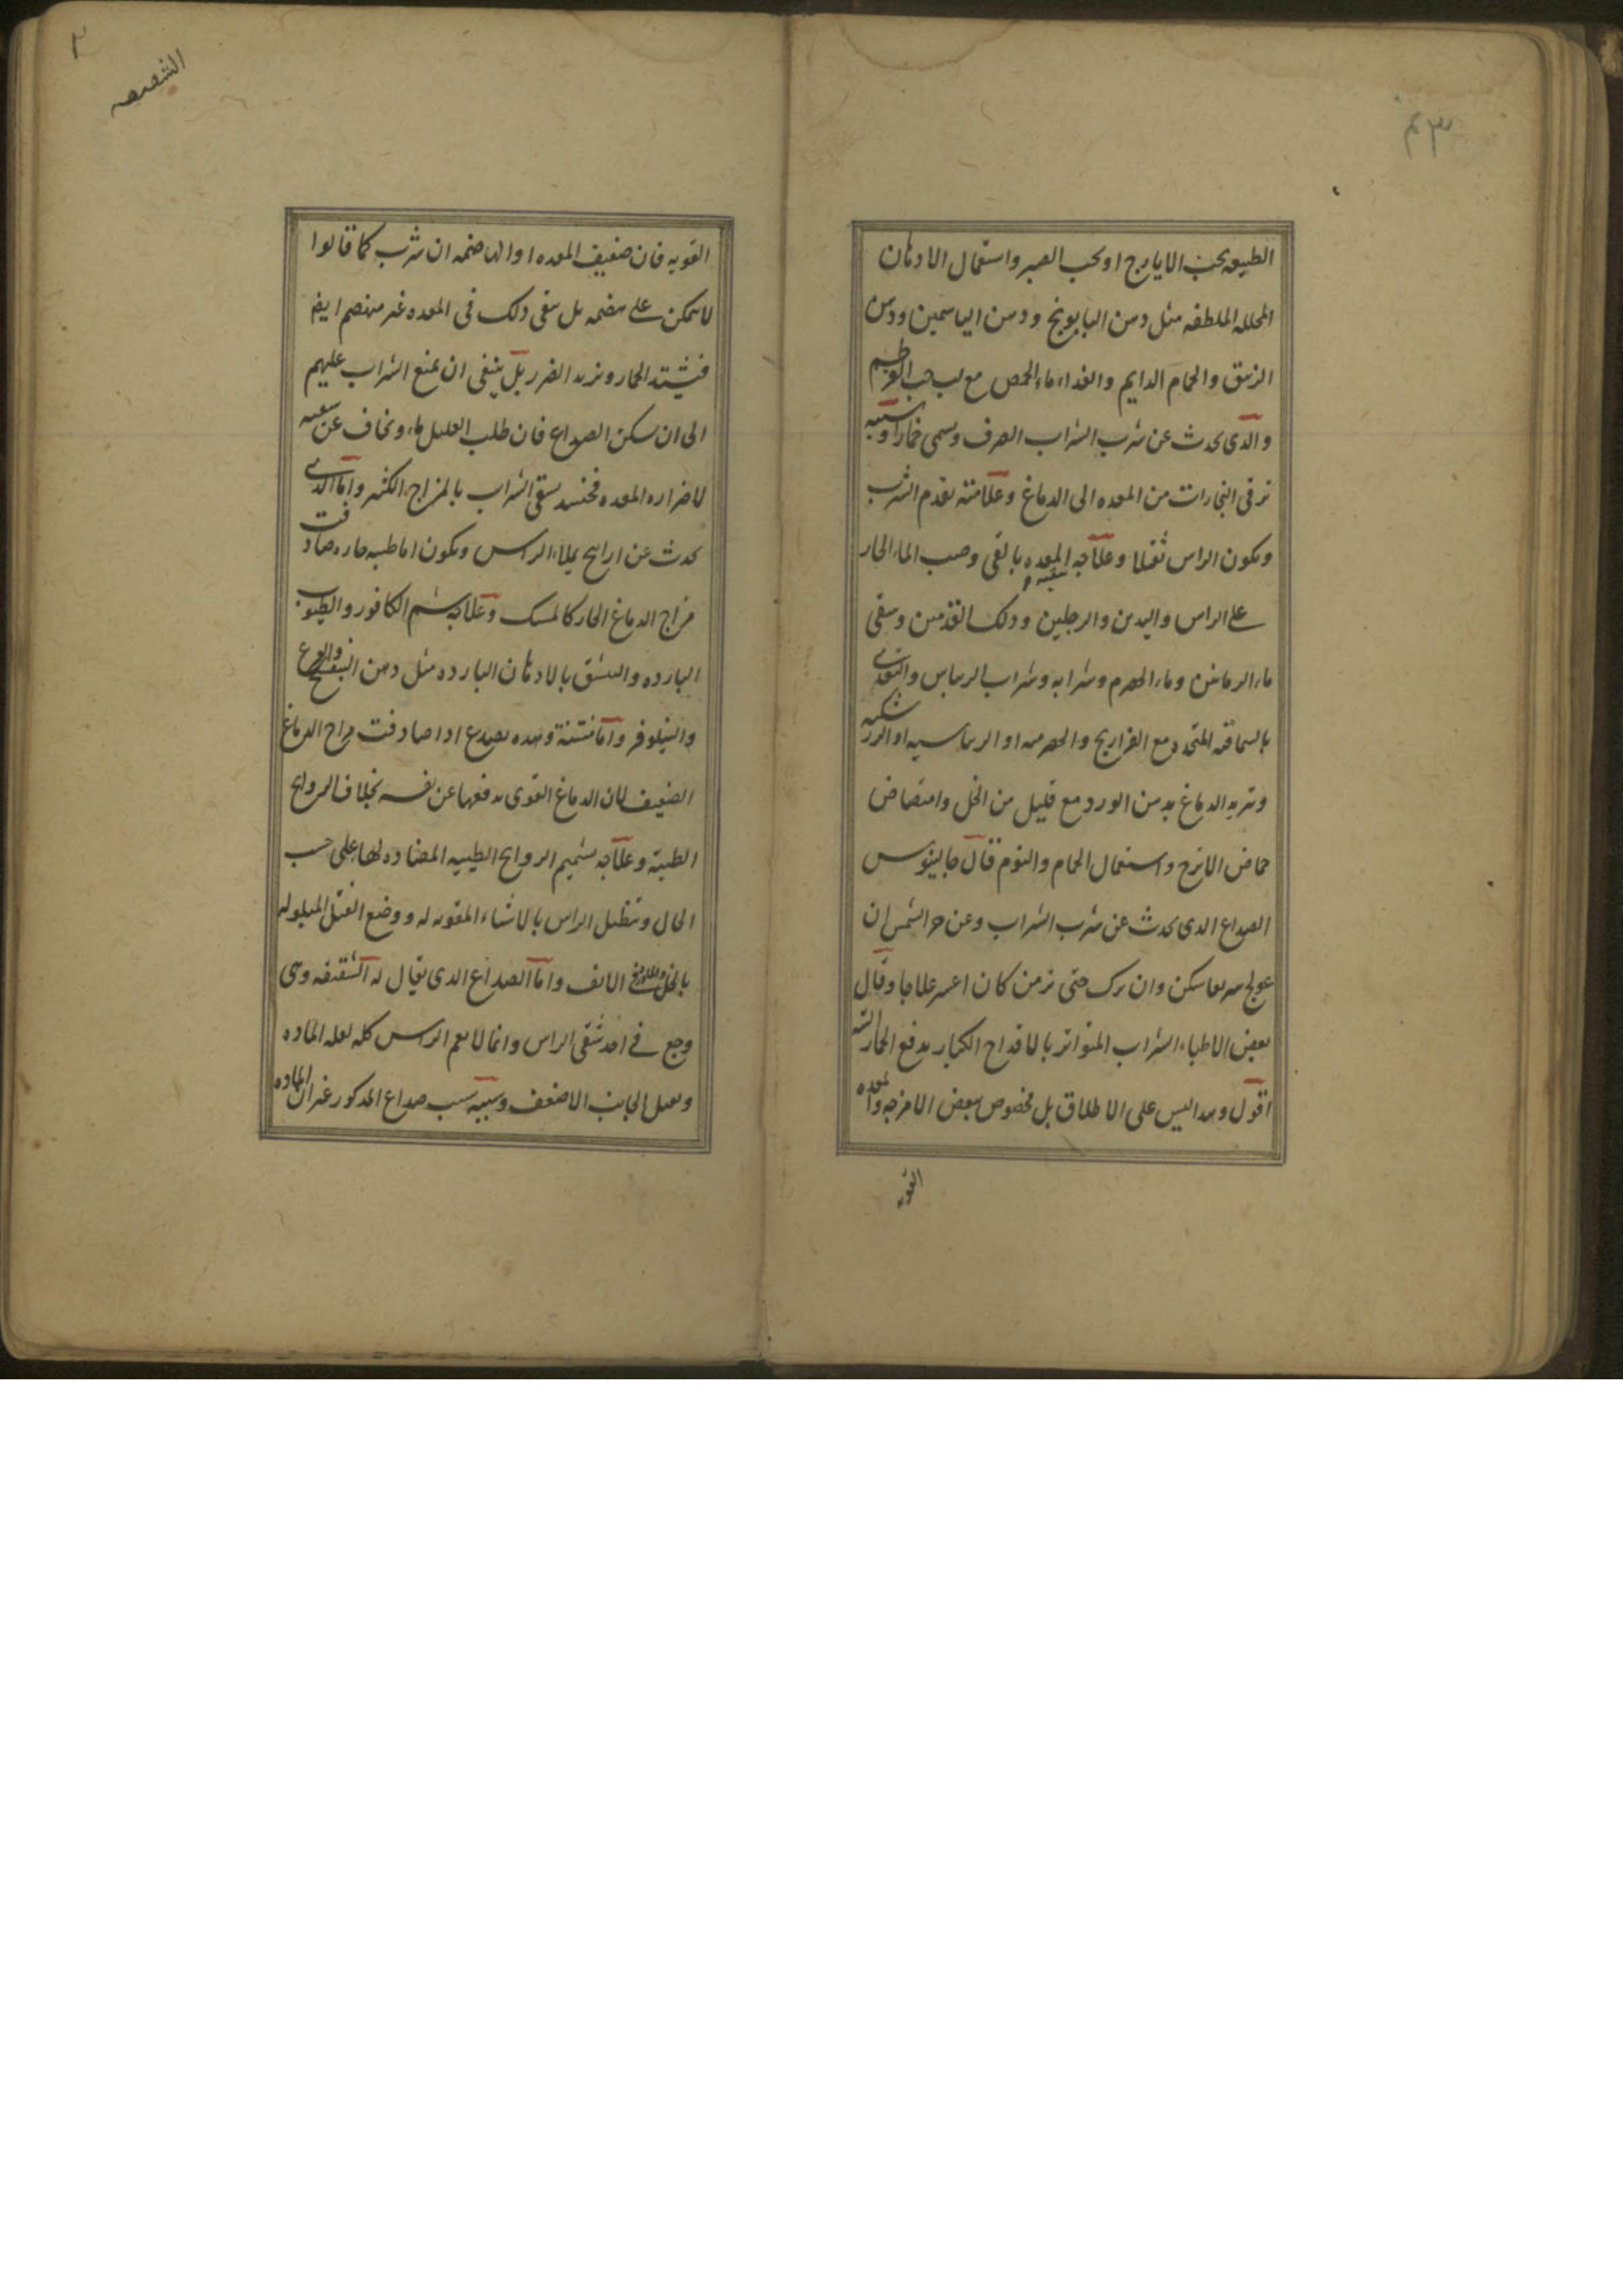 ٣م
الطبيعه بحب الايارج او بحب الصبر واستعمال الادهان
المحلله الملطفه مثل دهن البابونج ودهن الياسمين ودهن
الزنبق والحمام الدايم والغداء ماء الحمص مع لب حب القرطم
والدى يحدث عن شرب الشراب الصرف ويسمى خمارا وسببه
ترقى البخارات من المعده الى الدماغ وعلامته تقدم الشرب
ويكون الراس ثقيلا وعلاجه تنقيه المعده بالقى وصب الماء الحار
على الراس واليدين والرجلين ودلك القدمين وسقى
ماء الرمانين وماء الحصرم وشرابه وشراب الريباس والتغدى
بالسماقيه المتخده مع الفراريج والحصرميه او الريباسيه او الزرشكيه
وتبريد الدماغ بدهن الورد مع قليل من الخل وامتصاص
حماض الاترج واستعمال الحمام والنوم قال جالينوس
الصداع الدى يحدث عن شرب الشراب وعن حر الشمس ان
عولج سريعا سكن وان ترك حتى يزمن كان اعسر علاجا وقال
بعض الاطباء الشراب المتواتر بالاقداح الكبار يدفع الخمار
اقول وهدا ليس على الاطلاق بل مخصوص ببعض الامزجه والمعده
القويه
٢
الشقيقه
القويه فان ضعيف المعده او الهاضمه ان شرب كما قالوا
لا يمكن على هضمه بل يبقى دلك فى المعده غير منهضم ايضا
فيشتد الخمار ويزيد الضرر بل ينبغى ان يمنع الشراب عليهم
الى ان سكن الصداع فان طلب العليل ماء ويخاف عن سقيه
لاضراره المعده فحينئذ يسقى الشراب بالمزاج الكثير واما الدى
يحدث عن اراييح يملاء الراس ويكون اما طيبه حاره صادفت
مزاج الدماغ الحار كالمسك وعلاجه شم الكافور والطيوب
البارده والتنشق بالادهان البارده مثل دهن البنفسج والقرع
والنيلوفر واما منتنة وهده يصدع ادا صادفت مزاج الدماغ
الضعيف لان الدماغ القوى يدفعها عن نفسه بخلاف الروايح
الطيبة وعلاجه تشميم الروايح الطيبيه المضاده لها على حسب
الحال وتنطيل الراس بالاشياء المقويه له ووضع الفتل المبلوله
بالخل الانف واما الصداع الدى يقال له الشقيقه وهى
وجع فى احد شقى الراس وانما لا يعم الراس كله لعله الماده
وبميل الجانب الاضعف وسببه سبب صداع المدكور غير ان الماده